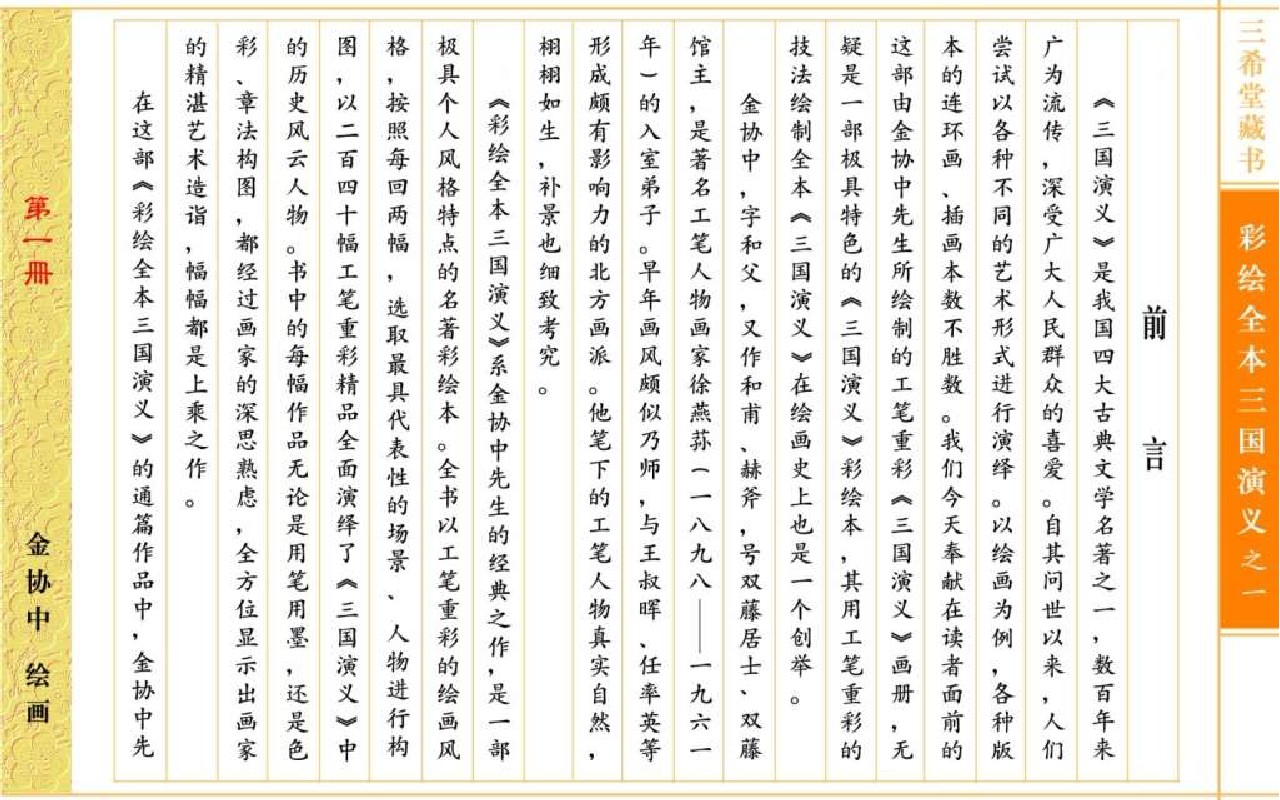 三希堂藏书
彩绘全本三国演义之一
前言
《三国演义》是我国四大古典文学名著之一,数百年来
广为流传,深受广大人民群众的喜爱。自其问世以来,人们
尝试以各种不同的艺术形式进行演绎。以绘画为例,各种版
本的连环画、插画本数不胜数。我们今天奉献在读者面前的
这部由金协中先生所绘制的工笔重彩《三国演义》画册,无
疑是一部极具特色的《三国演义》彩绘本,其用工笔重彩的
技法绘制全本《三国演义》在绘画史上也是一个创举。
金协中,字和父,又作和甫、赫斧,号双藤居士、双藤
馆主,是著名工笔人物画家徐燕荪(一八九八——一九六一
年)的入室弟子。早年画风颇似乃师,与王叔晖、任率英等
形成颇有影响力的北方画派。他笔下的工笔人物真实自然,
栩栩如生,补景也细致考究。
《彩绘全本三国演义》系金协中先生的经典之作,是一部
极具个人风格特点的名著彩绘本。全书以工笔重彩的绘画风
格,按照每回两幅,选取最具代表性的场景、人物进行构
图,以二百四十幅工笔重彩精品全面演绎了《三国演义》中
的历史风云人物。书中的每幅作品无论是用笔用墨,还是色
彩、章法构图,都经过画家的深思熟虑,全方位显示出画家
的精湛艺术造诣,幅幅都是上乘之作。
在这部《彩绘全本三国演义》的通篇作品中,金协中先
第一册
金协中 绘画